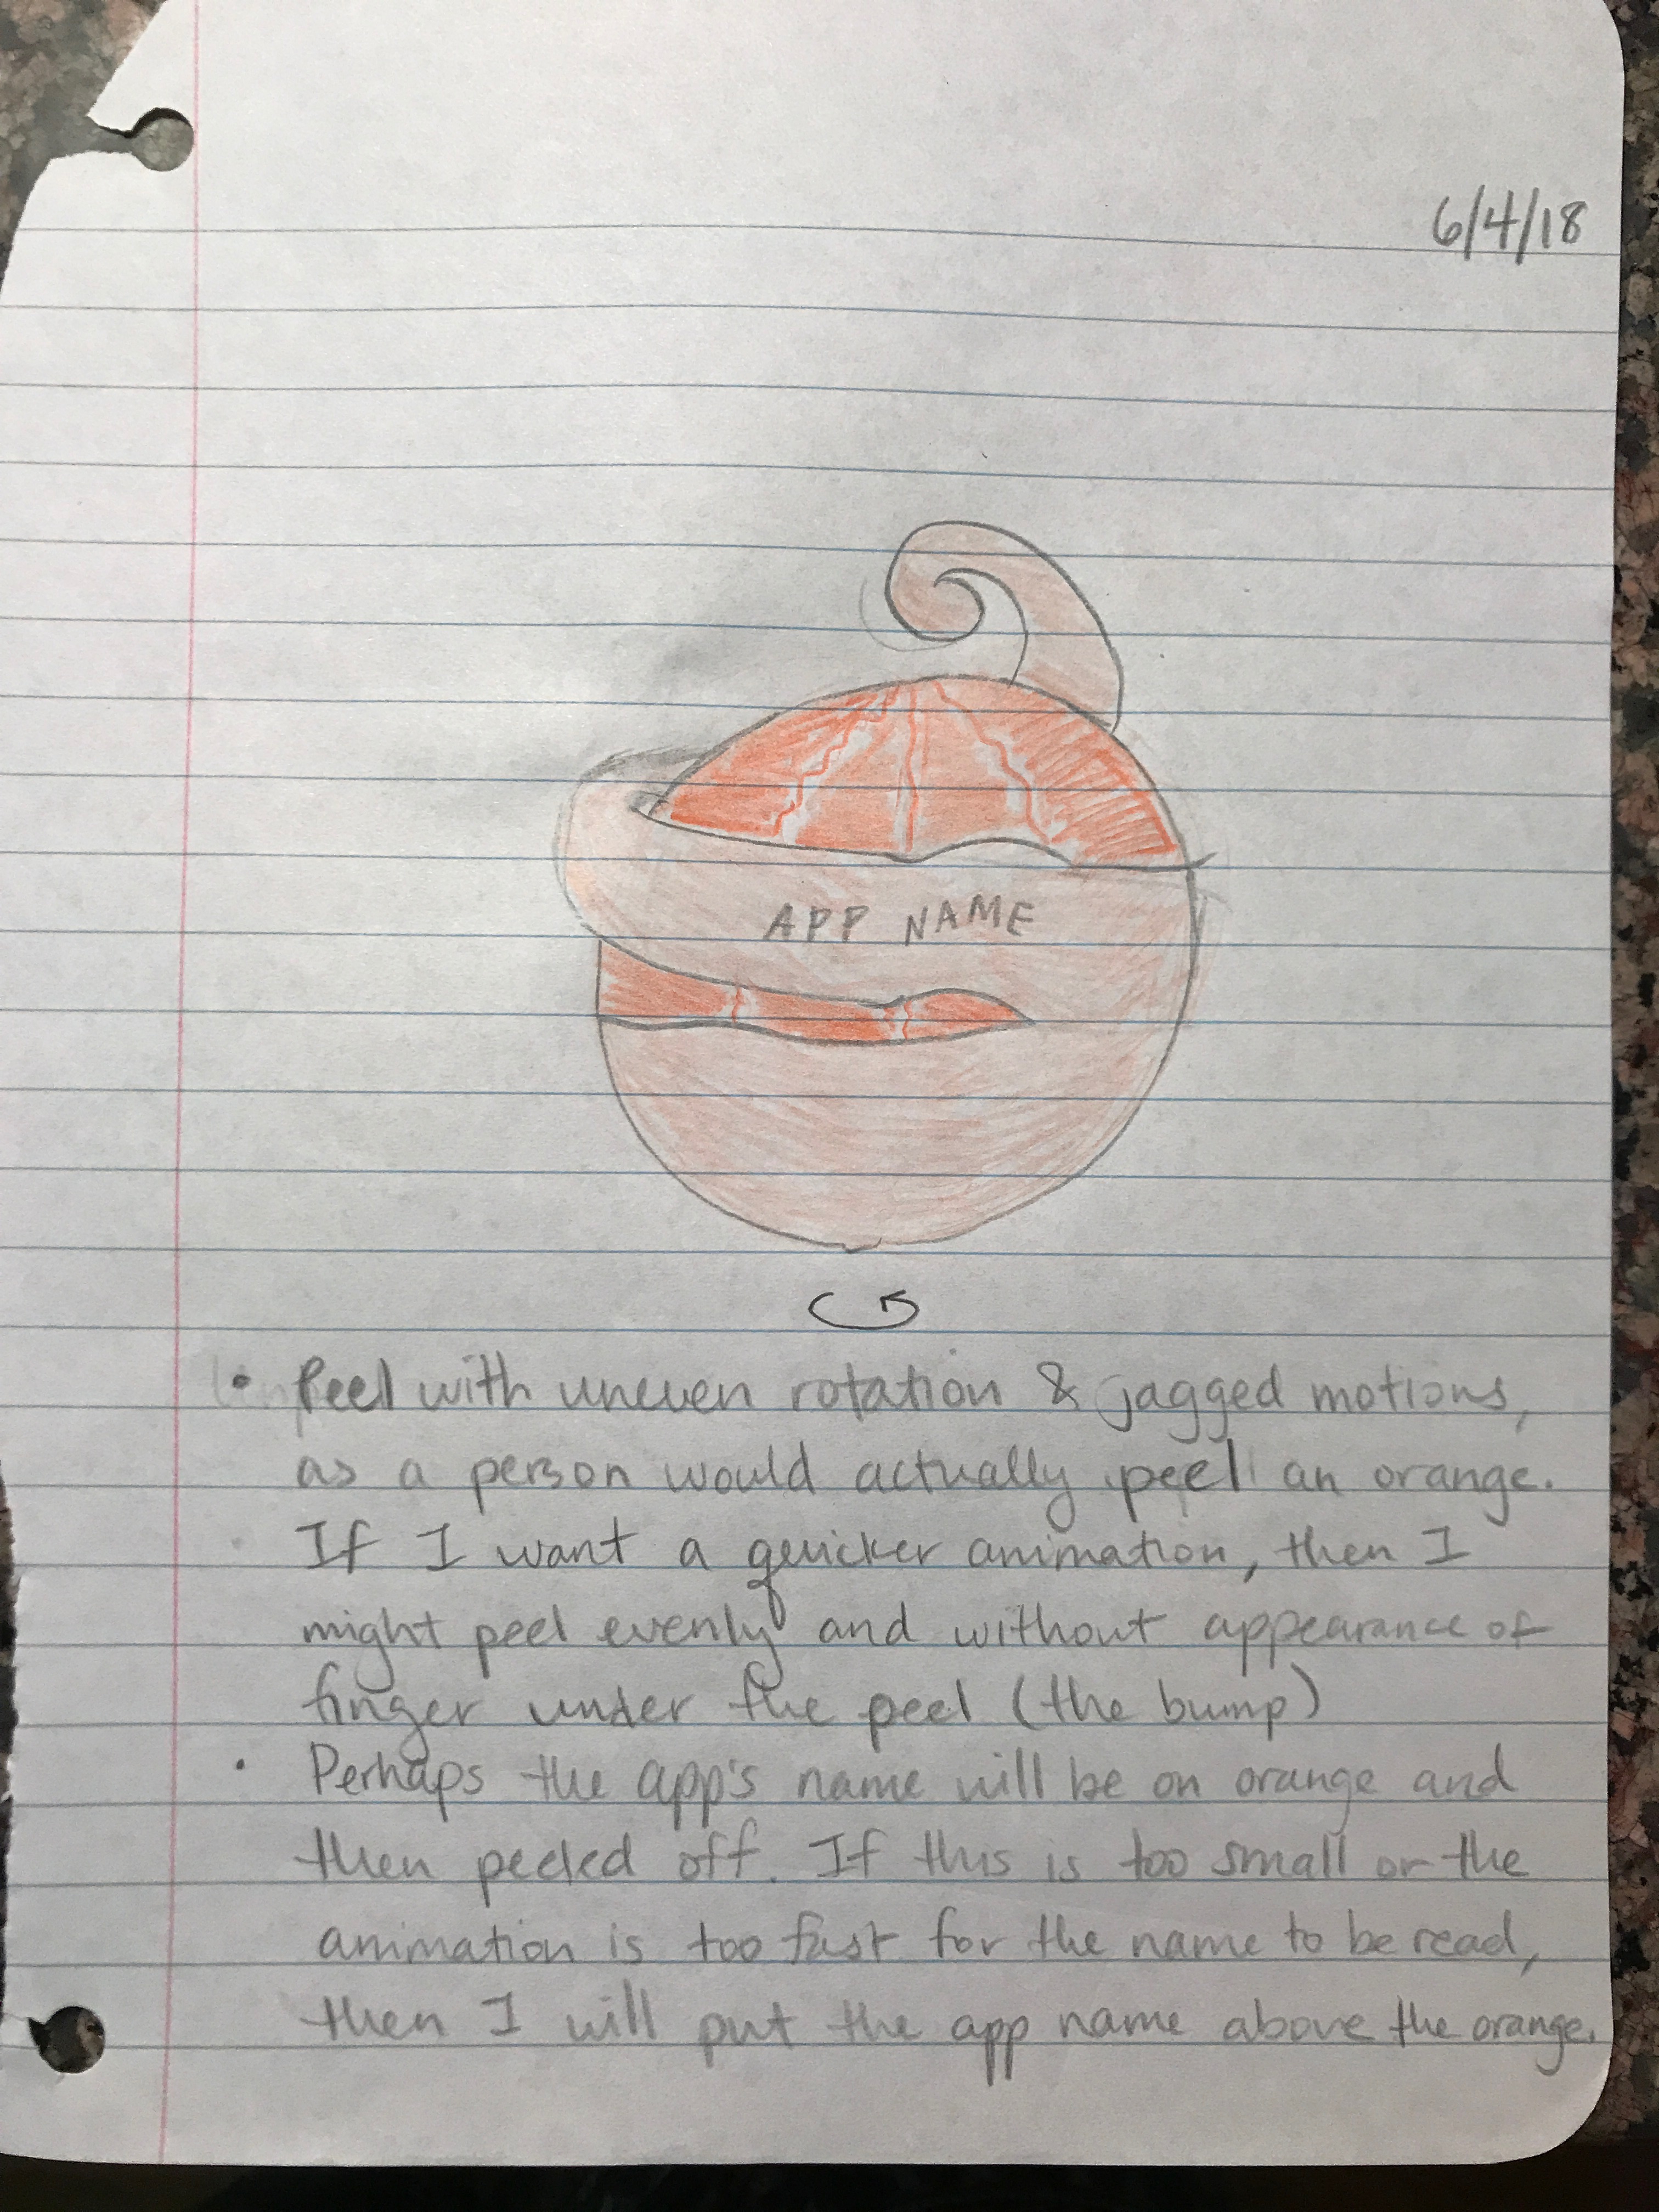 6/4/18
APP NAME
• Peel with uneven rotation & jagged motions,
as a person would actually peel an orange.
If I want a quicker animation, then I
might peel evenly and without appearance of
finger under the peel (the bump)
• Perhaps the app's name will be on orange and
then peeled off. If this is too small or the
animation is too fast for the name to be read,
then I will put the app name above the orange.